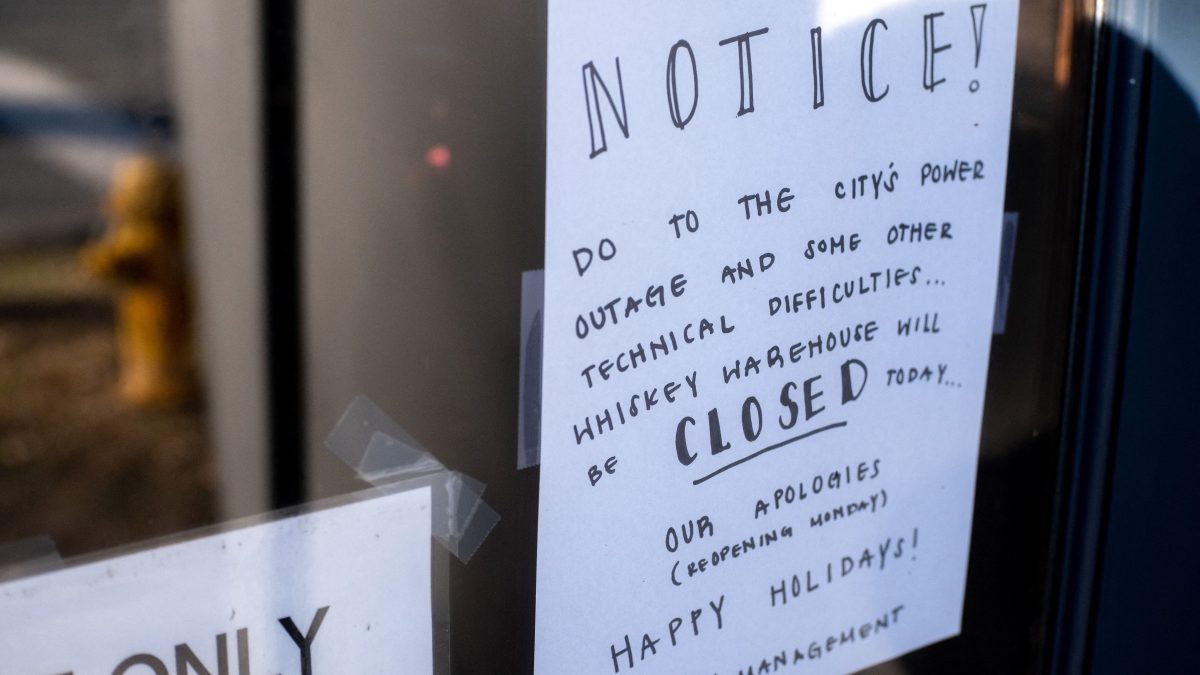 NOTICE!
DO TO THE CITY'S POWER
OUTAGE AND SOME OTHER
TECHNICAL DIFFICULTIES...
WHISKEY WAREHOUSE WILL
BE CLOSED TODAY...
OUR APOLOGIES
(REOPENING MONDAY)
HAPPY HOLIDAYS!
MANAGEMENT
ONLY